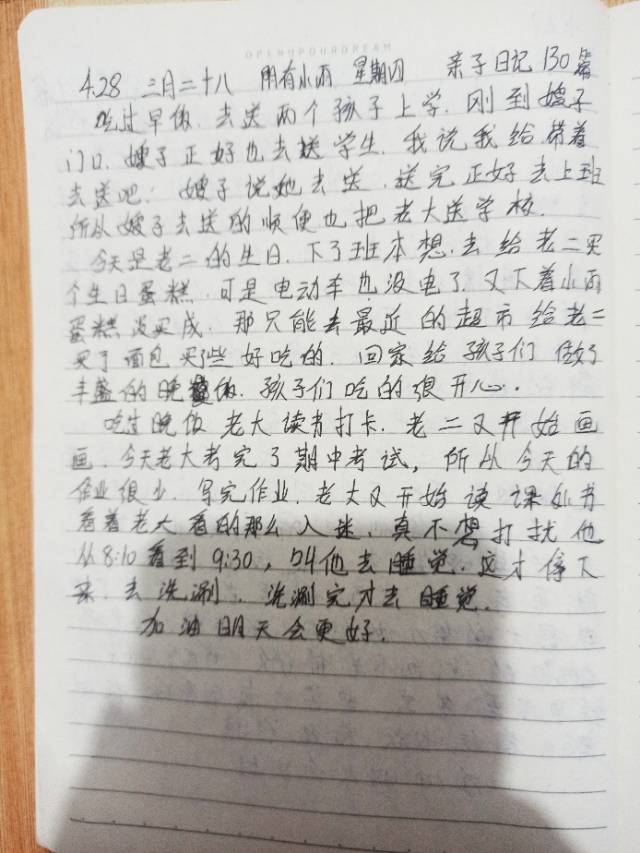 OPENUPOURDREAM
4.28 三月二十八 阴有小雨 星期四 亲子日记 130篇
吃过早饭.去送两个孩子上学.刚到嫂子
门口.嫂子正好也去送学生.我说我给带着
去送吧.嫂子说她去送.送完正好去上班
所以嫂子去送的顺便也把老大送学校.
今天是老二的生日.下了班本想.去给老二买
个生日蛋糕.可是电动车也没电了.又下着小雨
蛋糕没买成.那只能去最近的超市给老二
买了面包买了些好吃的.回家给孩子们做了
丰盛的晚饭.孩子们吃的很开心.
吃过晚饭老大读书打卡.老二又开始画
画.今天老大考完了期中考试,所以今天的
作业很少.写完作业.老大又开始读课外书
看着老大看的那么入迷.真不想打扰他
从8:10看到9:30,叫他去睡觉.这才停下
来.去洗涮.洗涮完才去睡觉.
加油明天会更好.